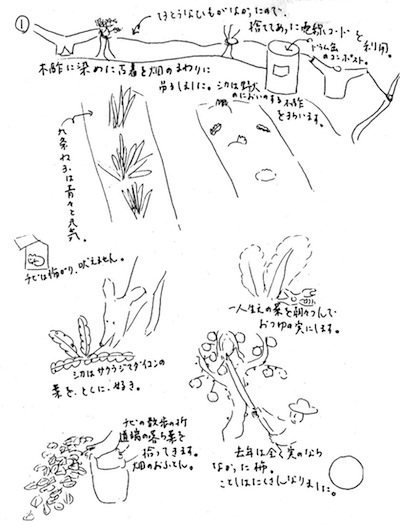 ①
てきとうなひもがなかったので、
捨ててあった電線コードを利用。
ドラム缶
のコンポスト。
木酢に染めた古着を畑のまわりに
吊るしました。シカは野火
のにおいのする木酢
をきらいます。
九条ねぎは青々と元気。
チビは怖がり、吠えません。
一人生えの菜を朝つんで
おつゆの実にします。
シカはサクラジマダイコンの
葉を、とくに、好き。
チビの散歩の折
道端の落ち葉を
拾ってきます。
畑のおふとん。
去年は全く実のなら
なかった柿。
ことしはたくさんなりました。